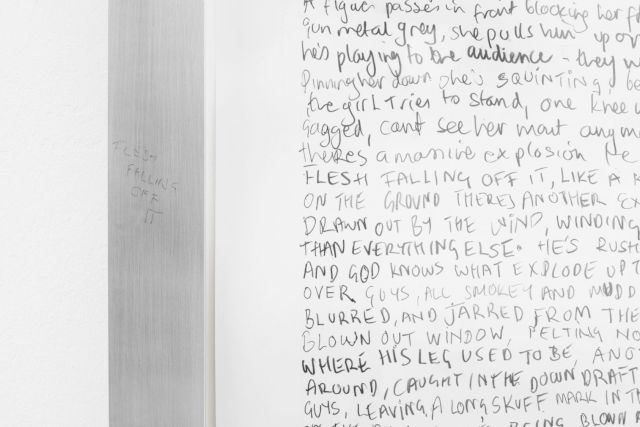 FLESH
FALLING
OFF
IT
A figure passes in front blocking her f
Gun metal grey, she pulls him up or
he's playing to the audience - they w
Pinning her down she's SQUINTING, be
the girl Tries to stand, one knee u
Gagged, cant see her mouth anym
theres a massive explosion He
FLESH FALLING OFF IT, LIKE A
ON THE GROUND THERES ANOTHER EX
DRAWN OUT BY THE WIND, WINDING
THAN EVERYTHING ELSE. HE'S RUSH
AND GOD KNOWS WHAT EXPLODE UP T
OVER GUYS, ALL SMOKEY AND MUDD
BLURRED, AND JARRED FROM THE
BLOWN OUT WINDOW, PELTING NO
WHERE HIS LEG USED TO BE, ANO
AROUND, CAUGHT IN THE DOWN DRAFT
GUYS, LEAVING A LONG SKUFF MARK IN TH
BEING BLOWN